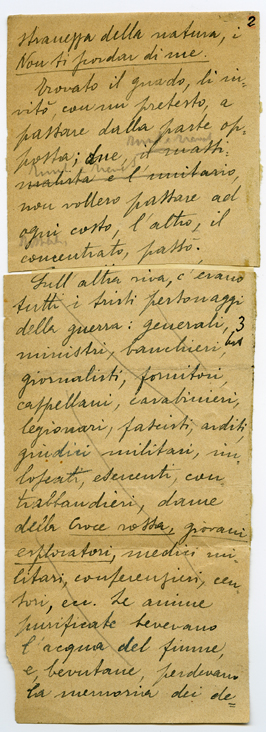 2
stranezza della natura, i
Non ti scordar di me.
Trovato il guado, li in-
vitò, con un pretesto, a
passare dalla parte op-
posta; due, il massi-
malista e l'unitario,
non vollero passare ad
ogni costo, l'altro, il
concentrato, passò.
Sull'altra riva, c'erano
tutti i tristi personaggi
della guerra: generali, 3
ministri, banchieri,
giornalisti, fornitori,
cappellani, carabinieri,
legionari, fascisti, arditi,
giudici militari, im-
boscati, esenenti, con-
trabbandieri, dame
della Croce rossa, giovani
esploratori, medici mi-
litari, conferenzieri, cen-
sori, ecc. Le anime
purificate bevevano
l'acqua del fiume,
e, bevutane, perdevano
la memoria dei de=